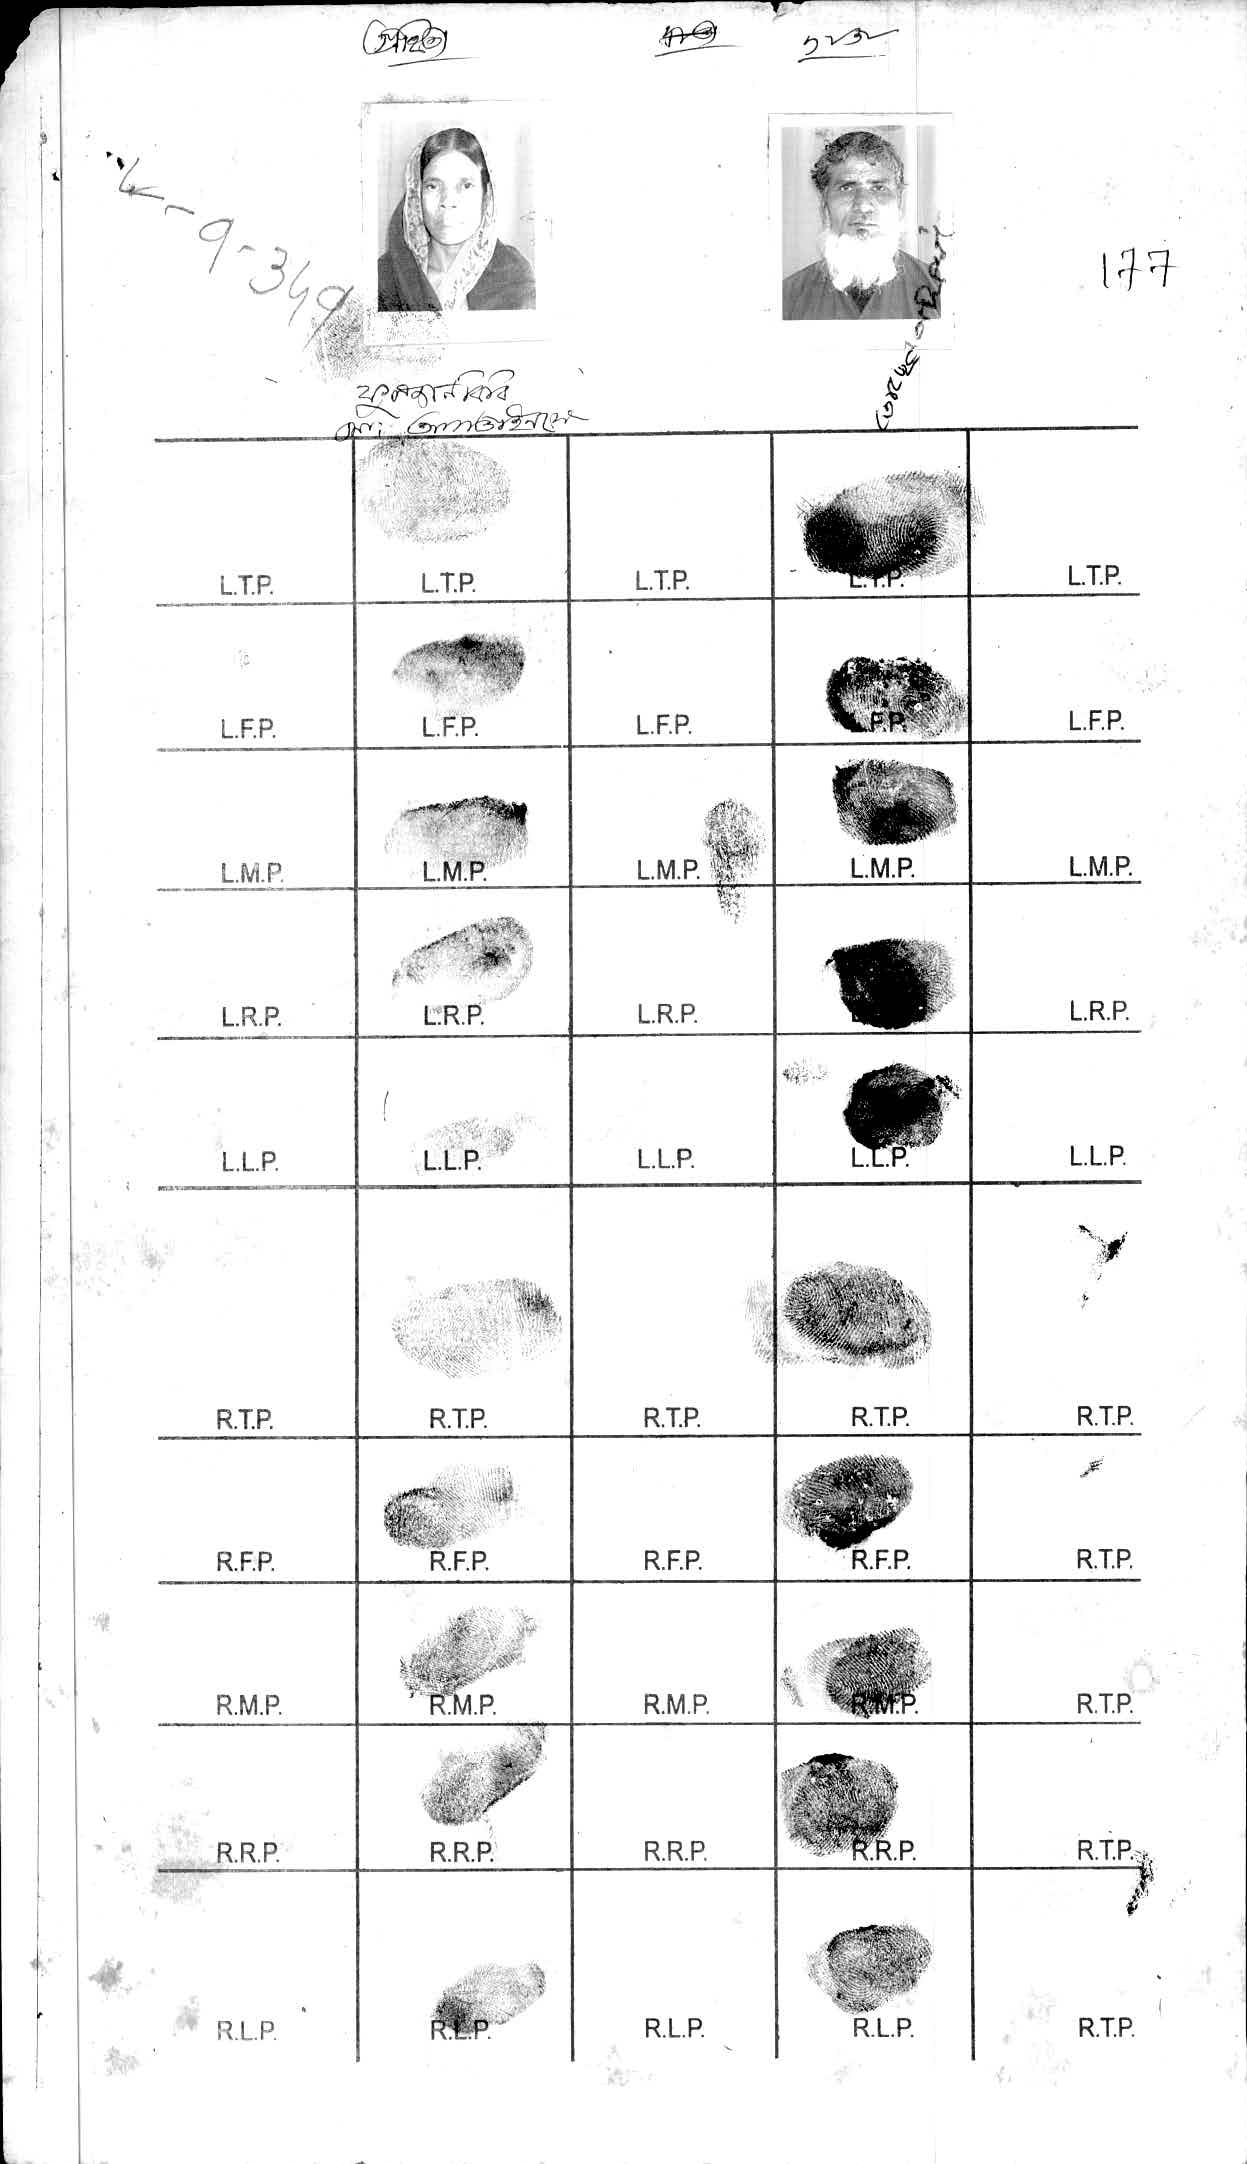 177
ফুলজান বিবি
L.T.P. L.T.P. L.T.P. L.T.P. L.T.P.
L.F.P. L.F.P. L.F.P. F.P. L.F.P.
L.M.P. L.M.P. L.M.P. L.M.P. L.M.P.
L.R.P. L.R.P. L.R.P. L.R.P.
L.L.P. L.L.P. L.L.P. L.L.P. L.L.P.
R.T.P. R.T.P. R.T.P. R.T.P. R.T.P.
R.F.P. R.F.P. R.F.P. R.F.P. R.T.P.
R.M.P. R.M.P. R.M.P. R.M.P. R.T.P.
R.R.P. R.R.P. R.R.P. R.R.P. R.T.P.
R.L.P. R.L.P. R.L.P. R.L.P. R.T.P.